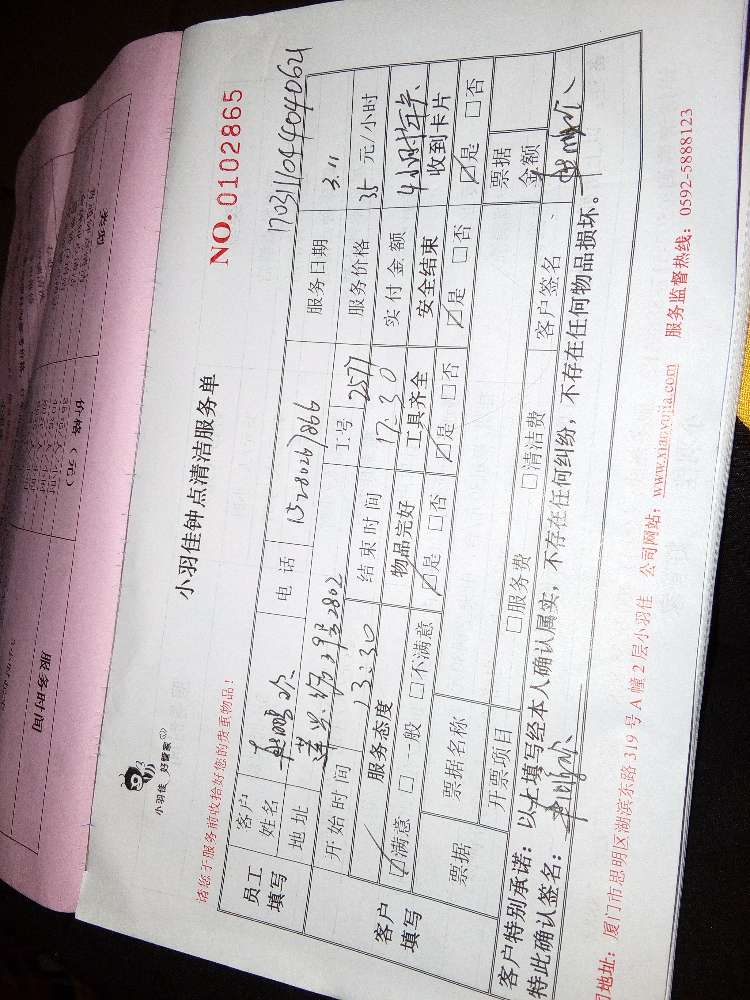 小羽佳 好管家
小羽佳钟点清洁服务单
NO. 0102865
请您于服务前收拾好您的贵重物品!
17031104404040621
员工填写 客户姓名 电话 15280267866 服务日期 3.11
地址 2802 工号 2577 服务价格 35 元/小时
客户填写 开始时间 13:30 结束时间 17:30 实付金额 4小时年卡
服务态度 物品完好 工具齐全 安全结束 收到卡片
☑满意 □一般 □不满意 ☑是 □否 ☑是 □否 ☑是 □否 ☑是 □否
票据 票据名称 票据金额
开票项目 □服务费 □清洁费 客户签名
客户特别承诺:以上填写经本人确认属实,不存在任何纠纷,不存在任何物品损坏。
特此确认签名:
地址:厦门市思明区湖滨东路 319 号 A 幢 2 层小羽佳 公司网站:www.xiaoyujia.com 服务监督热线:0592-5888123
价格(元)
服务时间